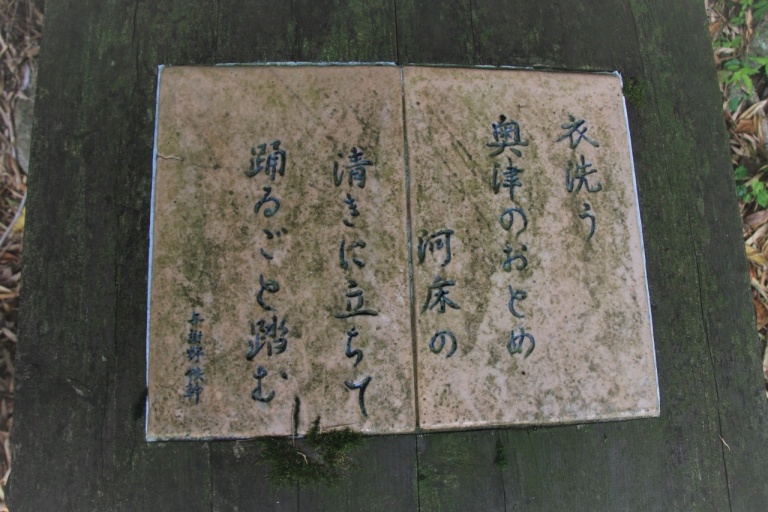 衣洗う
奥津のおとめ
河床の
清きに立ちて
踊るごと踏む
与謝野鉄幹